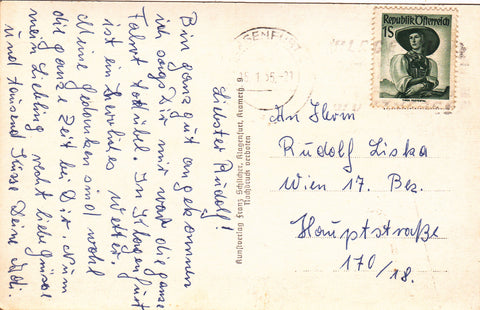 Liebster Rudolf!
Bin ganz gut angekommen
ich sags Dir mir war die ganze
Fahrt totübel. In Klagenfurt
ist ein herrliches Wetter.
Meine Gedanken sind wohl
die ganze Zeit bei Dir. Nun
mein Liebling recht liebe Grüsse
und tausend Küsse Deine Adi.
Kunstverlag Franz Schilcher, Klagenfurt, Kramerg. 9
Nachdruck verboten
Republik Österreich
1S
An Herrn
Rudolf Liska
Wien 17. Bez.
Hauptstraße
170/18.